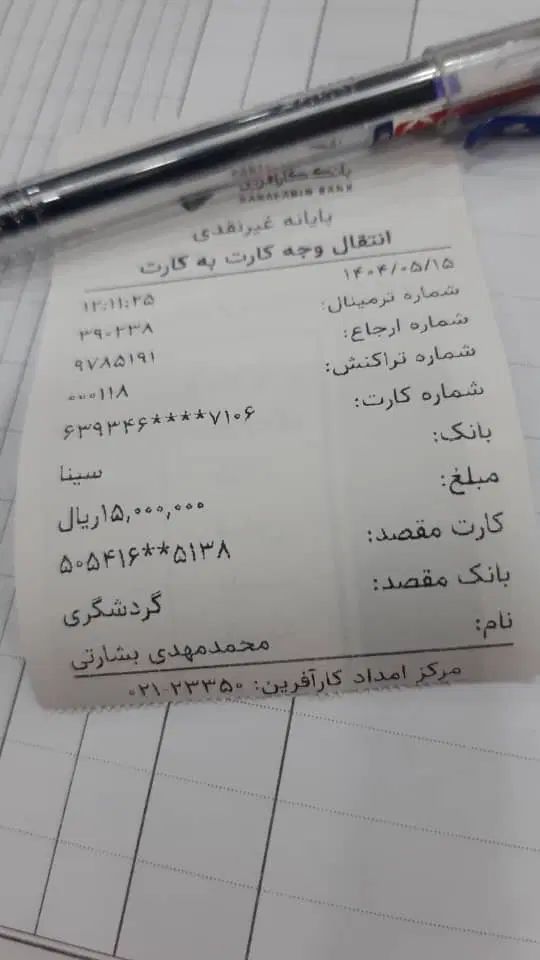 بانک کارآفرین
KARAFARIN BANK
پایانه غیرنقدی
انتقال وجه کارت به کارت
۱۴۰۴/۰۵/۱۵ ۱۲:۱۱:۲۵
شماره ترمینال: ۳۹۰۲۳۸
شماره ارجاع: ۹۷۸۵۱۹۱
شماره تراکنش: ۰۰۰۱۱۸
شماره کارت: ۶۳۹۳۴۶****۷۱۰۶
بانک: سینا
مبلغ: ۱۵,۰۰۰,۰۰۰ریال
کارت مقصد: ۵۰۵۴۱۶**۵۱۳۸
بانک مقصد: گردشگری
نام: محمدمهدی بشارتی
مرکز امداد کارآفرین: ۰۲۱-۲۳۳۵۰